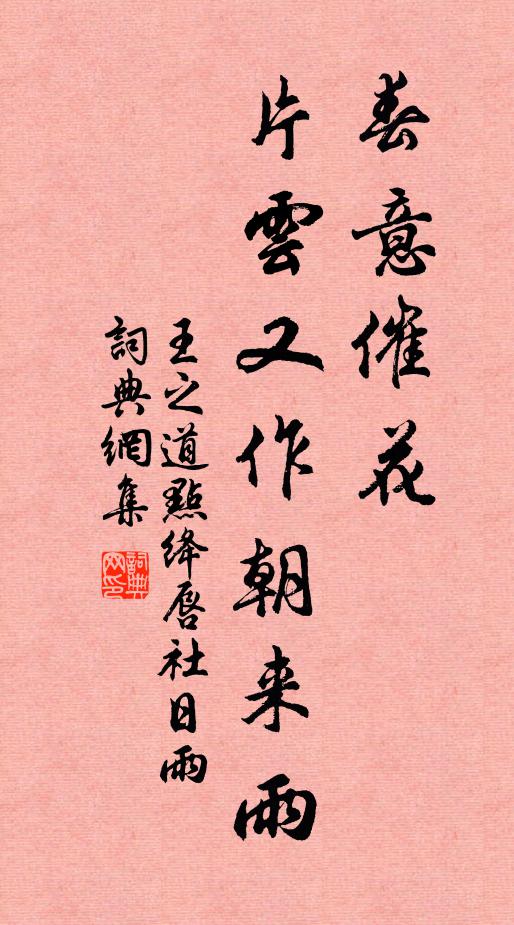 春意催花
片雲又作朝来雨
王之道點绛唇社日雨
詞典網集
詞典网印